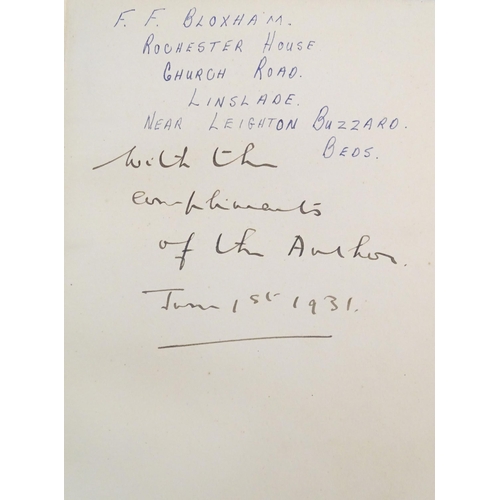 F. F. BLOXHAM.
ROCHESTER HOUSE
CHURCH ROAD.
LINSLADE.
NEAR LEIGHTON BUZZARD.
BEDS.
with the
compliments
of the Author.
June 1st 1931.